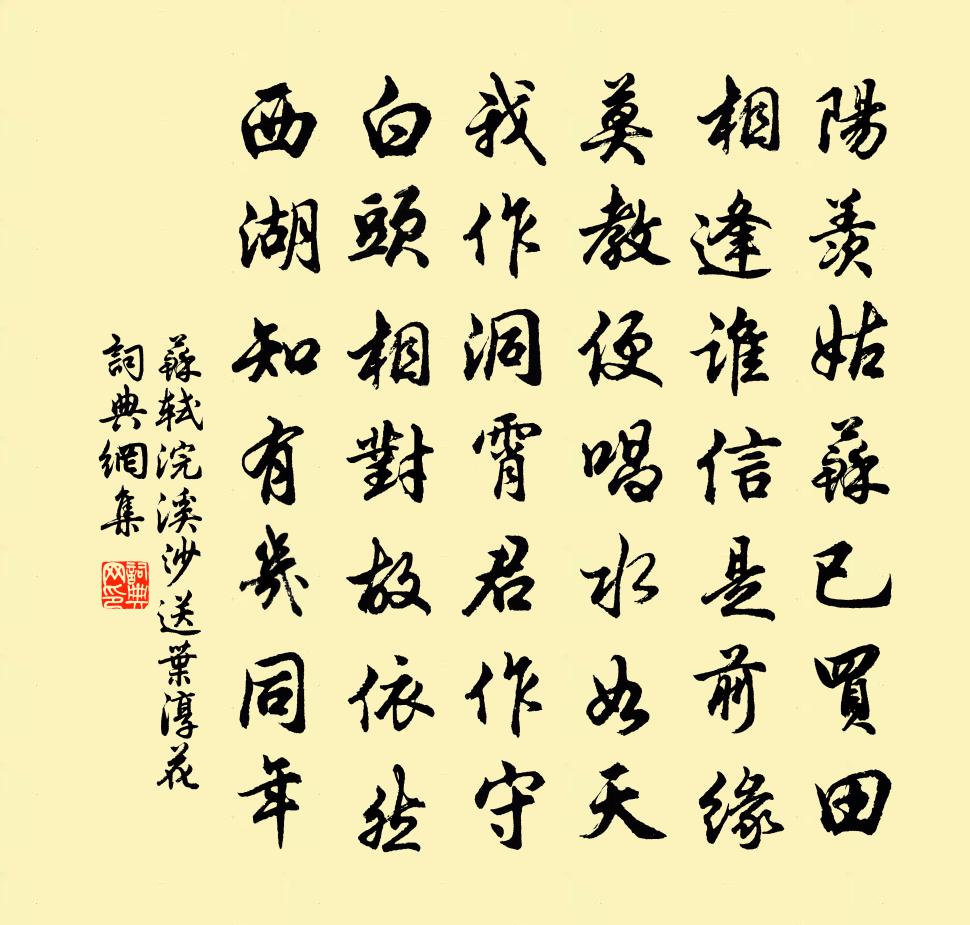 陽羨姑蘇已買田
相逢誰信是前緣
莫教便唱水如天
我作洞霄君作守
白頭相對故依然
西湖知有幾同年
蘇軾浣溪沙 送葉淳花
詞典網集
詞典网印